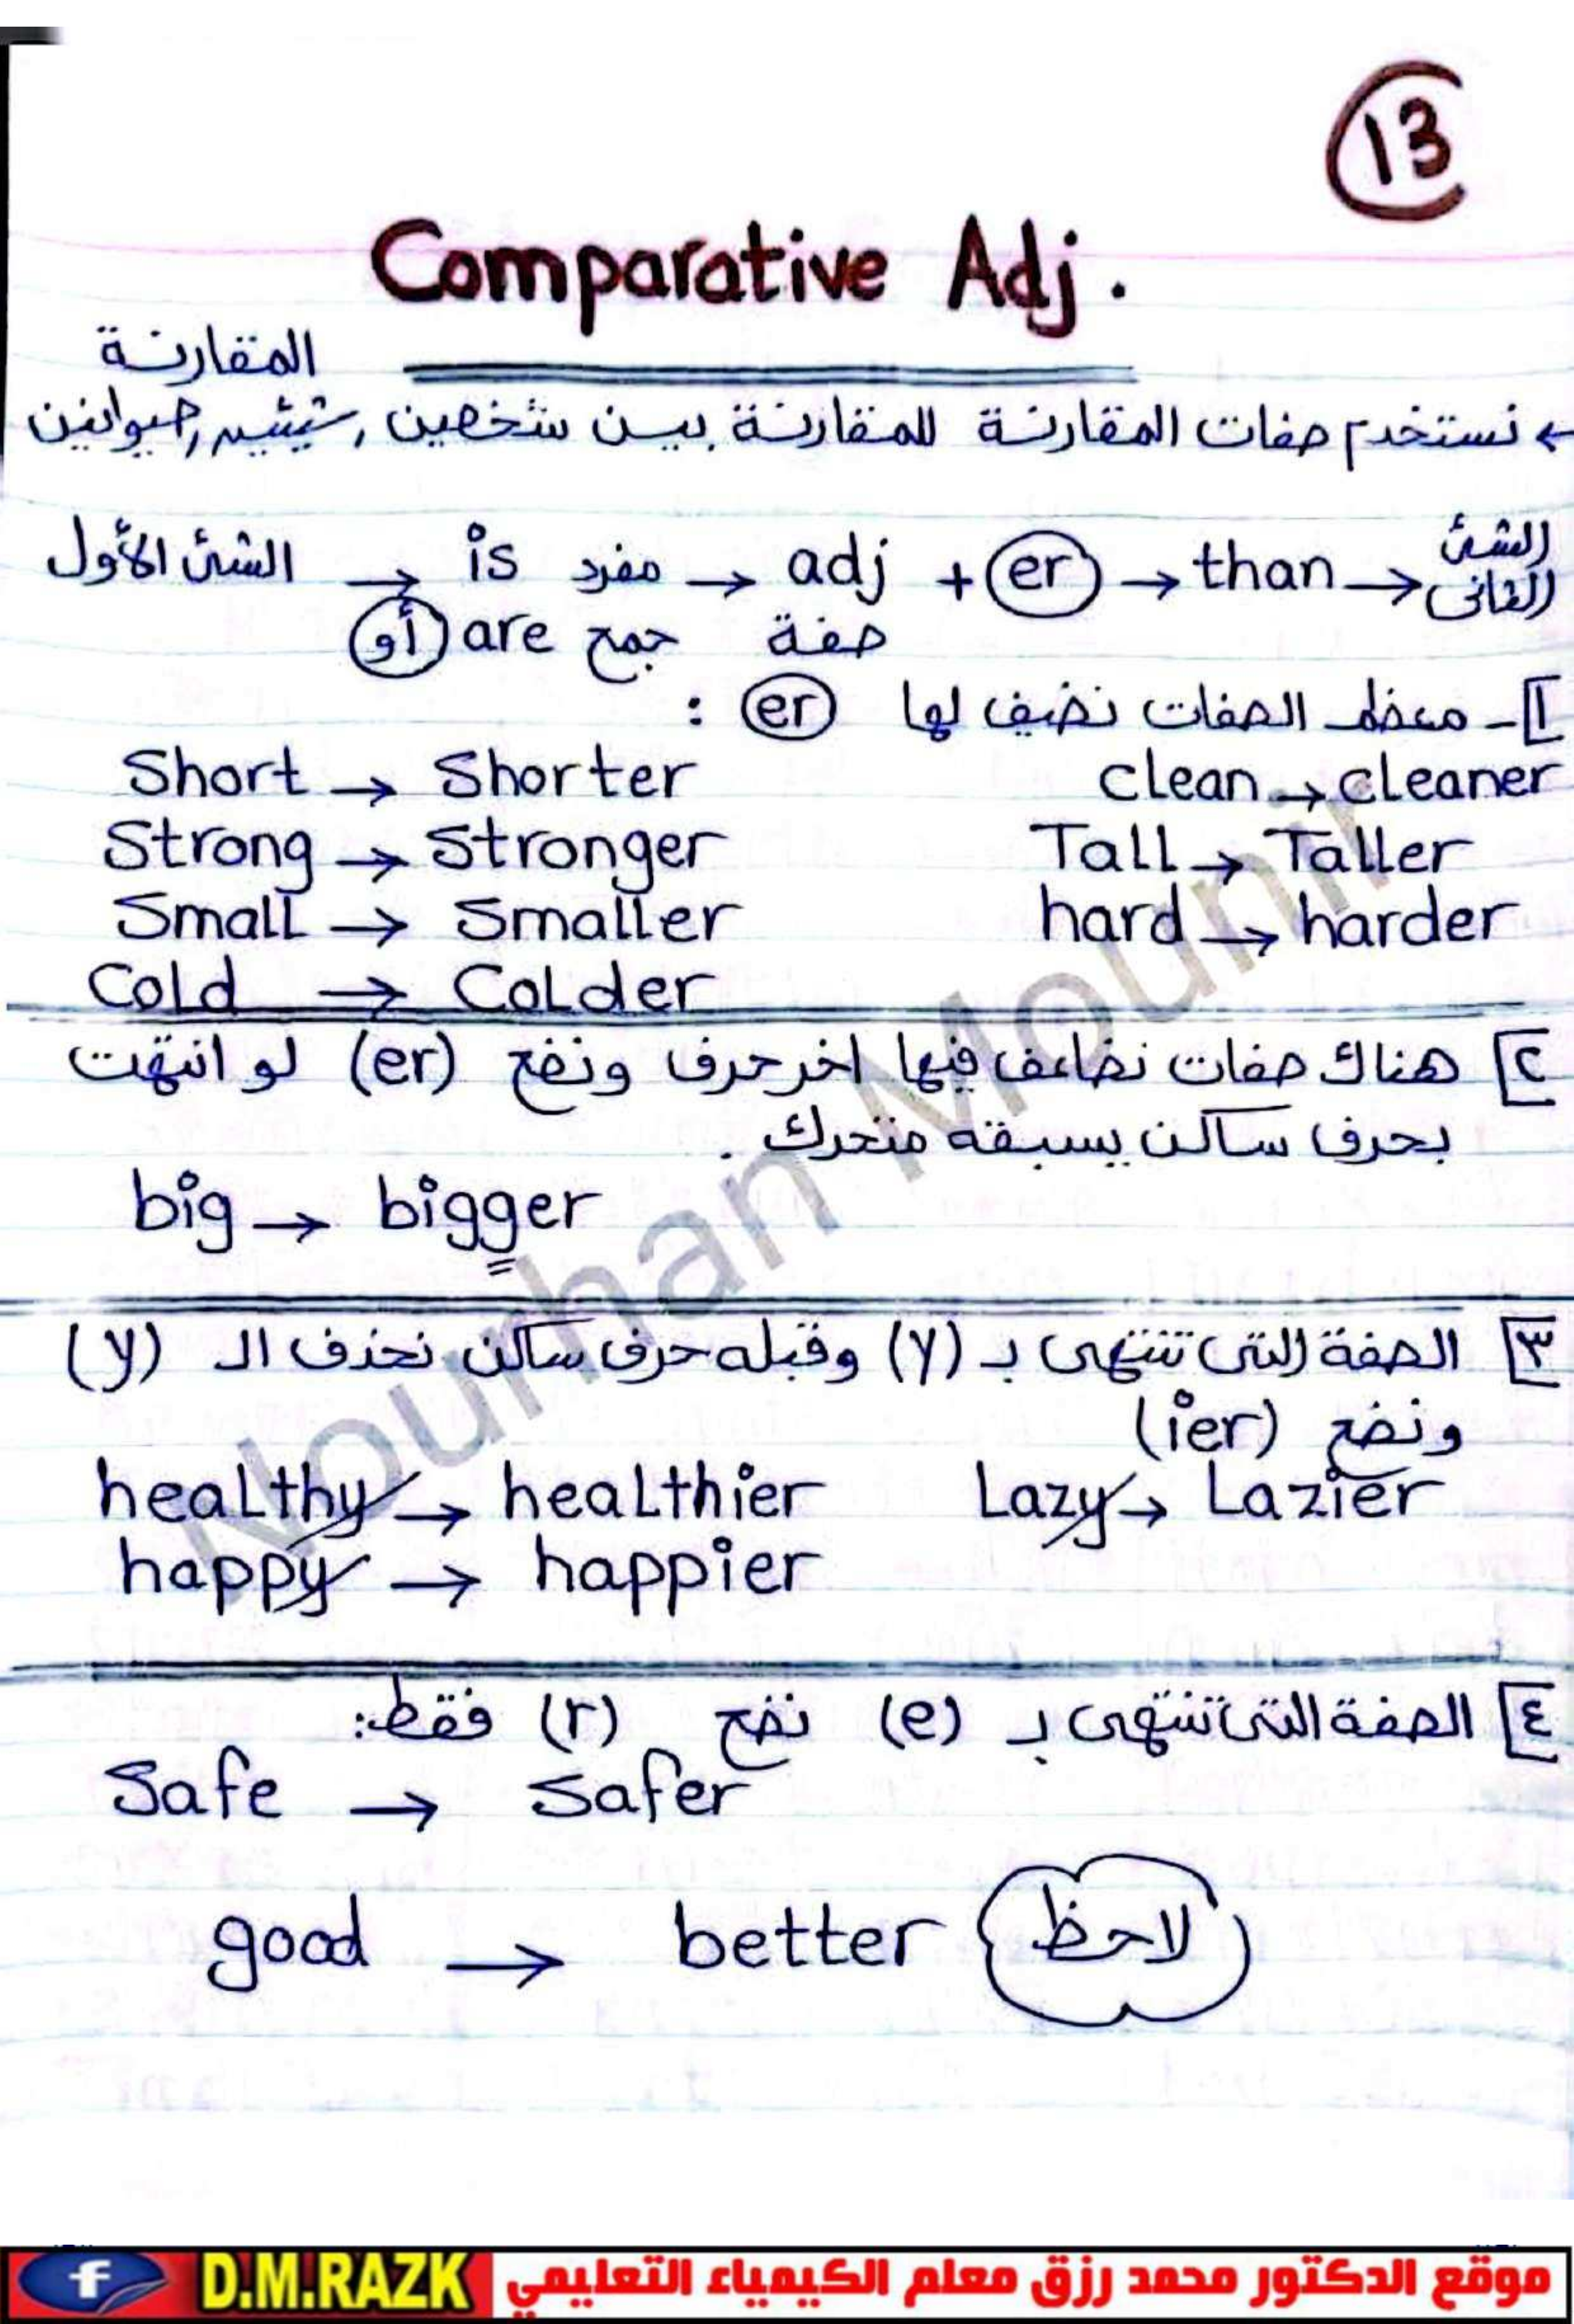 13
Comparative Adj.
المقارنة
← نستخدم صفات المقارنة للمقارنة بين شخصين, شيئين, حيوانين
الشئ الأول → is مفرد → adj + er → than → الشئ الثاني
أو are جمع صفة
1- معظم الصفات نضيف لها er :
Short → Shorter clean → cleaner
Strong → Stronger Tall → Taller
Small → Smaller hard → harder
Cold → Colder
٢ هناك صفات نضاعف فيها اخر حرف ونضع (er) لو انتهت
بحرف ساكن يسبقه متحرك .
big → bigger
٣ الصفة التى تنتهى بـ (y) وقبله حرف ساكن نحذف الـ (y)
ونضع (ier)
healthy → healthier Lazy → Lazier
happy → happier
٤ الصفة التى تنتهى بـ (e) نضع (r) فقط:
Safe → Safer
good → better لاحظ
Nourhan Mounir
f D.M.RAZK موقع الدكتور محمد رزق معلم الكيمياء التعليمي